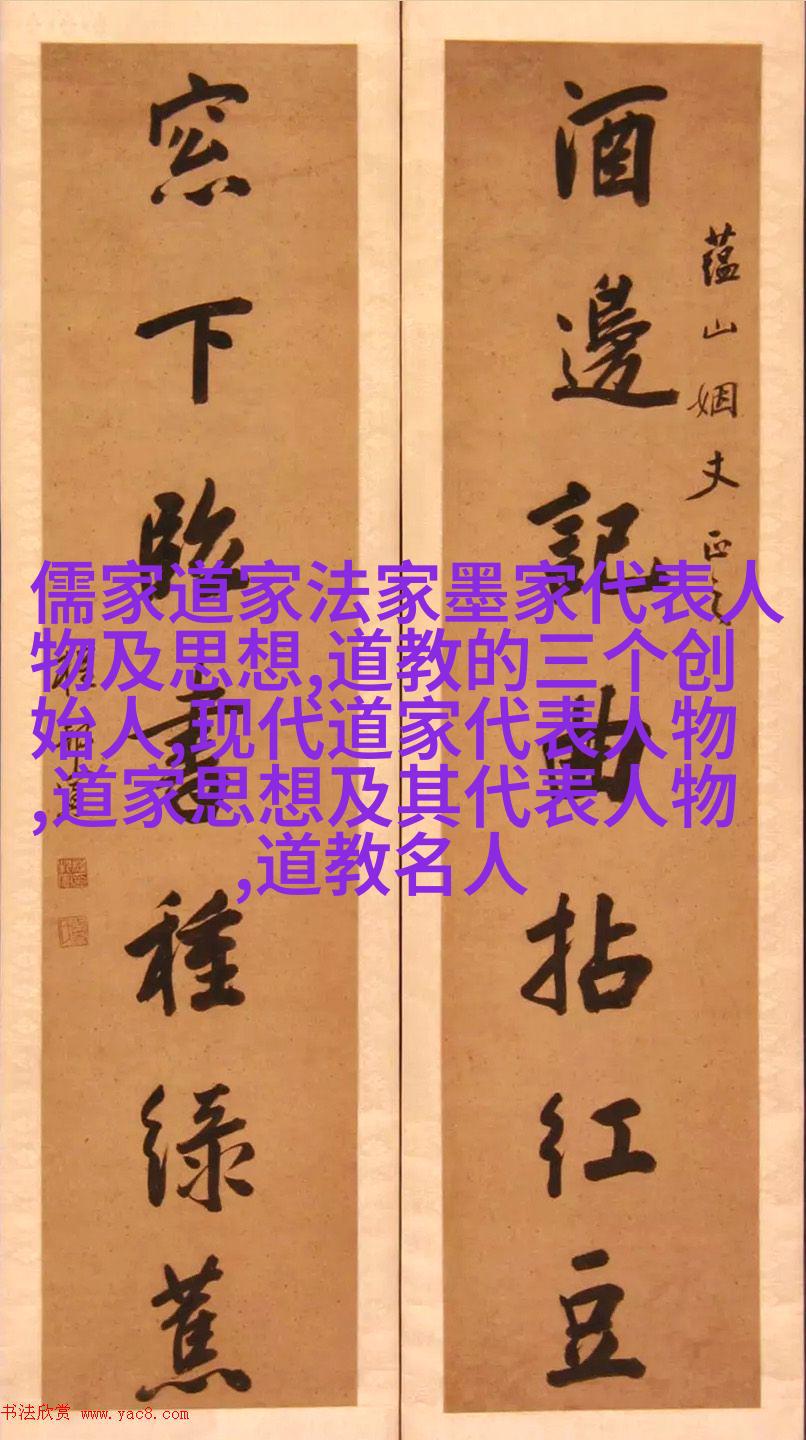 蕴山姻丈正之
酒邊記曲拈紅豆
窓下臨書種緑蕉
儒家道家法家墨家代表人
物及思想,道教的三个创
始人,现代道家代表人物
,道家思想及其代表人物
,道教名人
书法欣赏 www.yac8.com